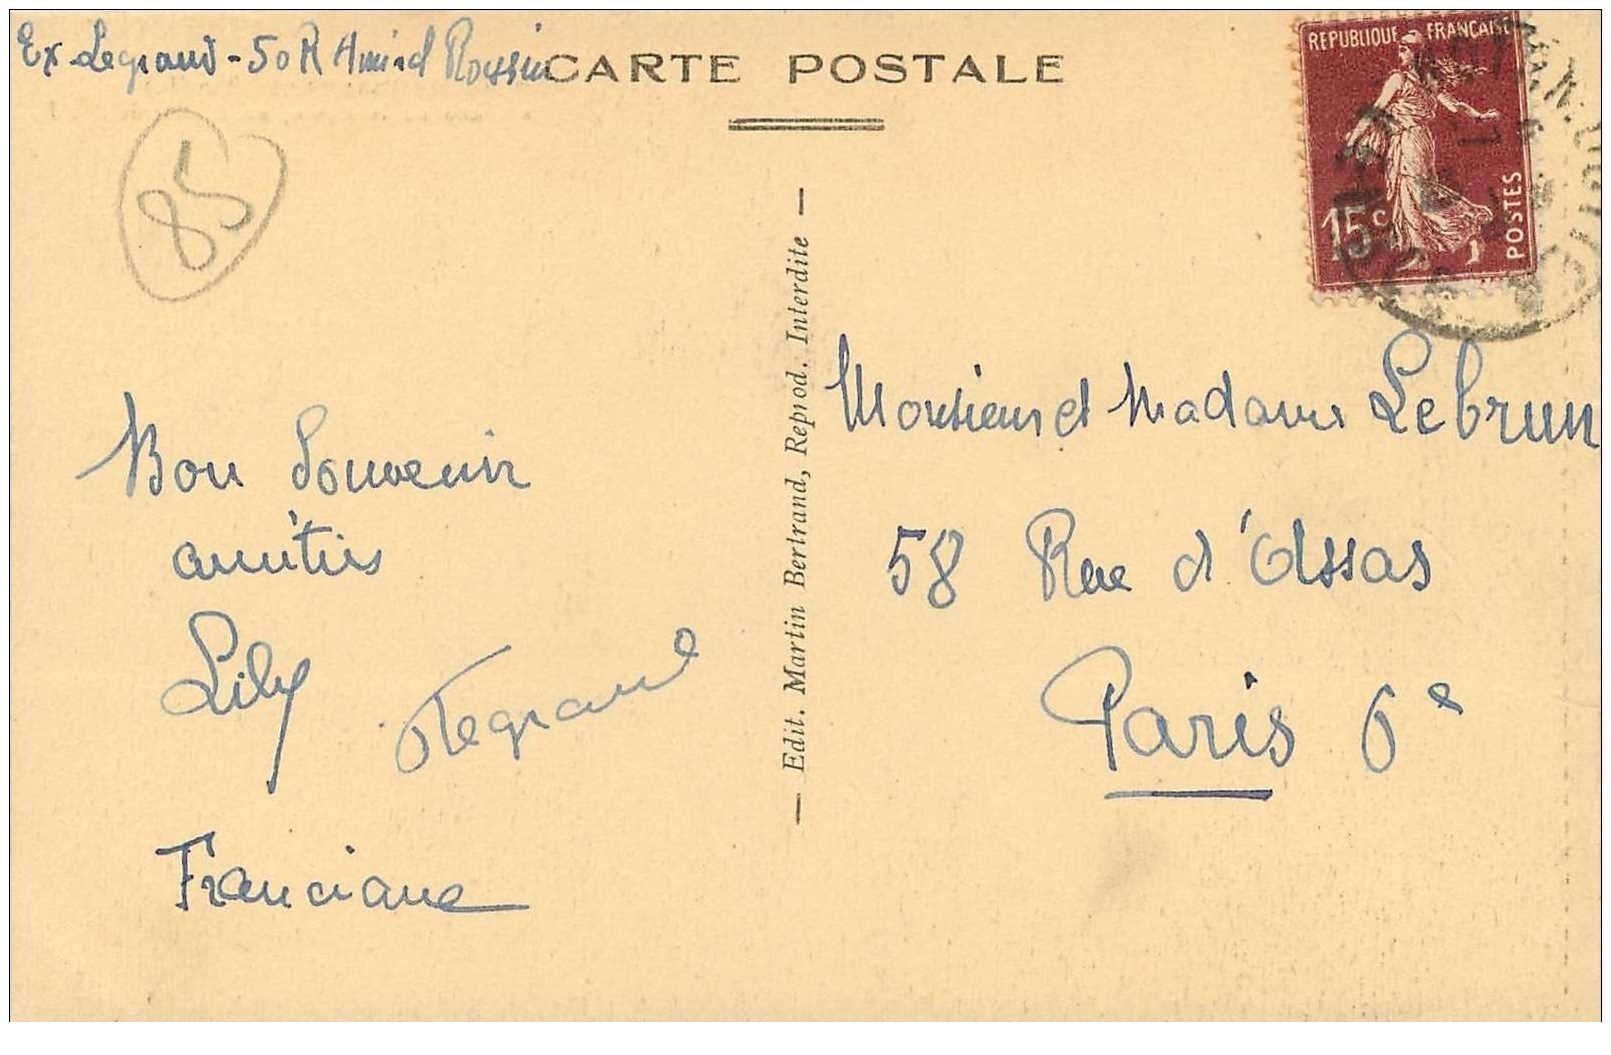 Ex. Legrand - 50 R Amiral Roussin
CARTE POSTALE
REPUBLIQUE FRANÇAISE
15c
POSTES
85
— Edit. Martin Bertrand, Reprod. Interdite —
Bon Souvenir
amitiés
Lily
Legrand
Franciane
Monsieur et Madame Lebrun
58 Rue d'Assas
Paris 6e